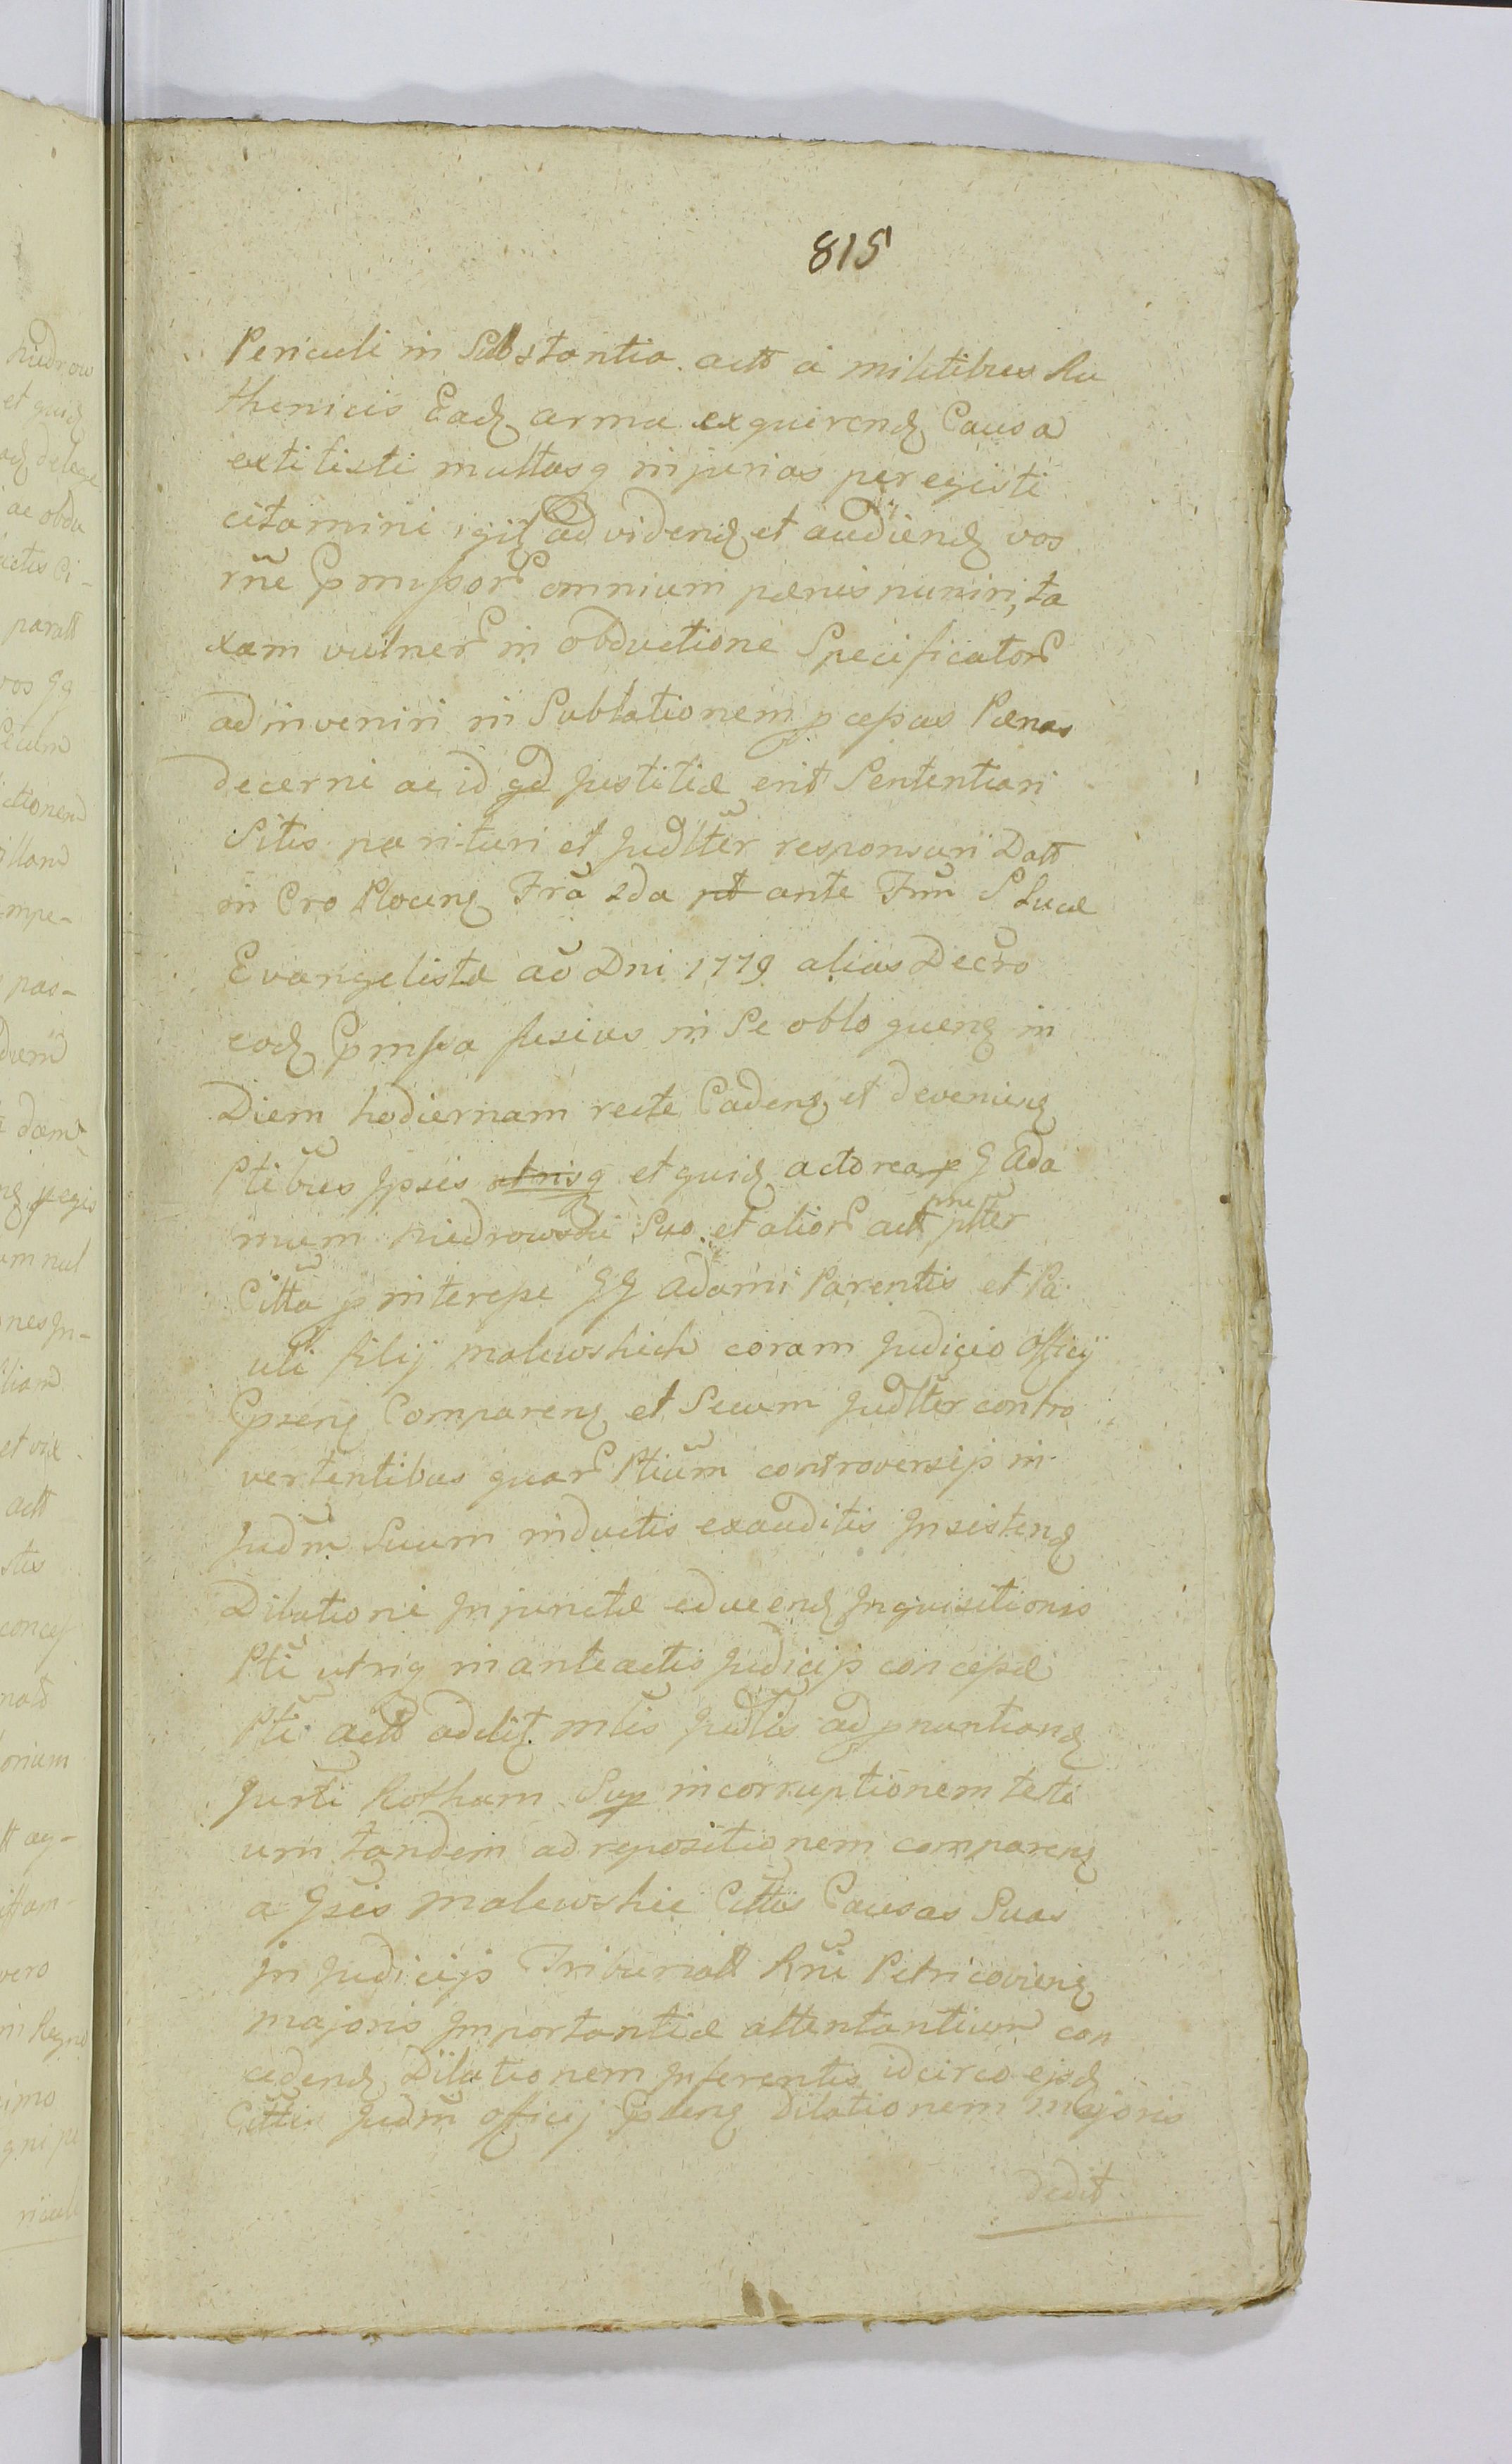 815
Periculi in Substantia actt a militibus Ru
thenicis Eadɋ arma exquirendɋ Causa
extitisti multasq injurias peregisti
citamini igitɋ ad videndɋ et audiendɋ vos
rñe Pmissor omnium pænis puniri, ta
xam vulner in obductione Specificator
adinveniri in Sublationem pæpas Pænas
decerni ac id qd Justitiæ erit Sententiari
Sitis parituri et Judltter responsuri Datt
in Cro Plocenɋ Fra 2da ante Ftm S Lucæ
Evangelistæ ao Dni 1779 alias Decro
eodɋ Pmissa fusius in Se obloquenɋ in
Diem hodiernam recte Cadenɋ et devenienɋ
Ptibus Ipsis utrisq et quidɋ actorea p G Ada
mum niedrowski Suo et alior actt pnu pltter
Citta p interepe GG Adami Parentis et Pa
uli filij malewskich coram Judicio Officij
Cpsenɋ Comparenɋ et Secum Judltter contro
vertentibus quar Ptium controversijs in
Judm Suum inductis exauditis Insistendɋ
Dilationi Injunctæ educendɋ Inquisitionis
Pti utriq in anteactis Judicijs concepæ
Pti actt addit mtis Judtis ad pnuntiandɋ
Jurti Rotham Sup incorruptionem testi
um tandem ad repositionem comparenɋ
a Gsis malewskie Cittis Causas Suas
in Judicijs Tribunatt Rni Petricovienɋ
majoris Importantiæ attentantium con
cedendɋ Dilationem Inferentis idcirco ejsdɋ
Cittis Judm officij Psenɋ Dilationem majoris
dedit